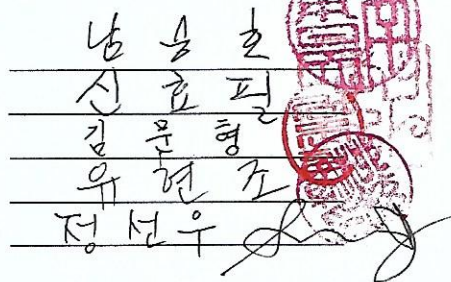 남 승 호
신 효 필
김 문 형
유 현 조
정 선 우